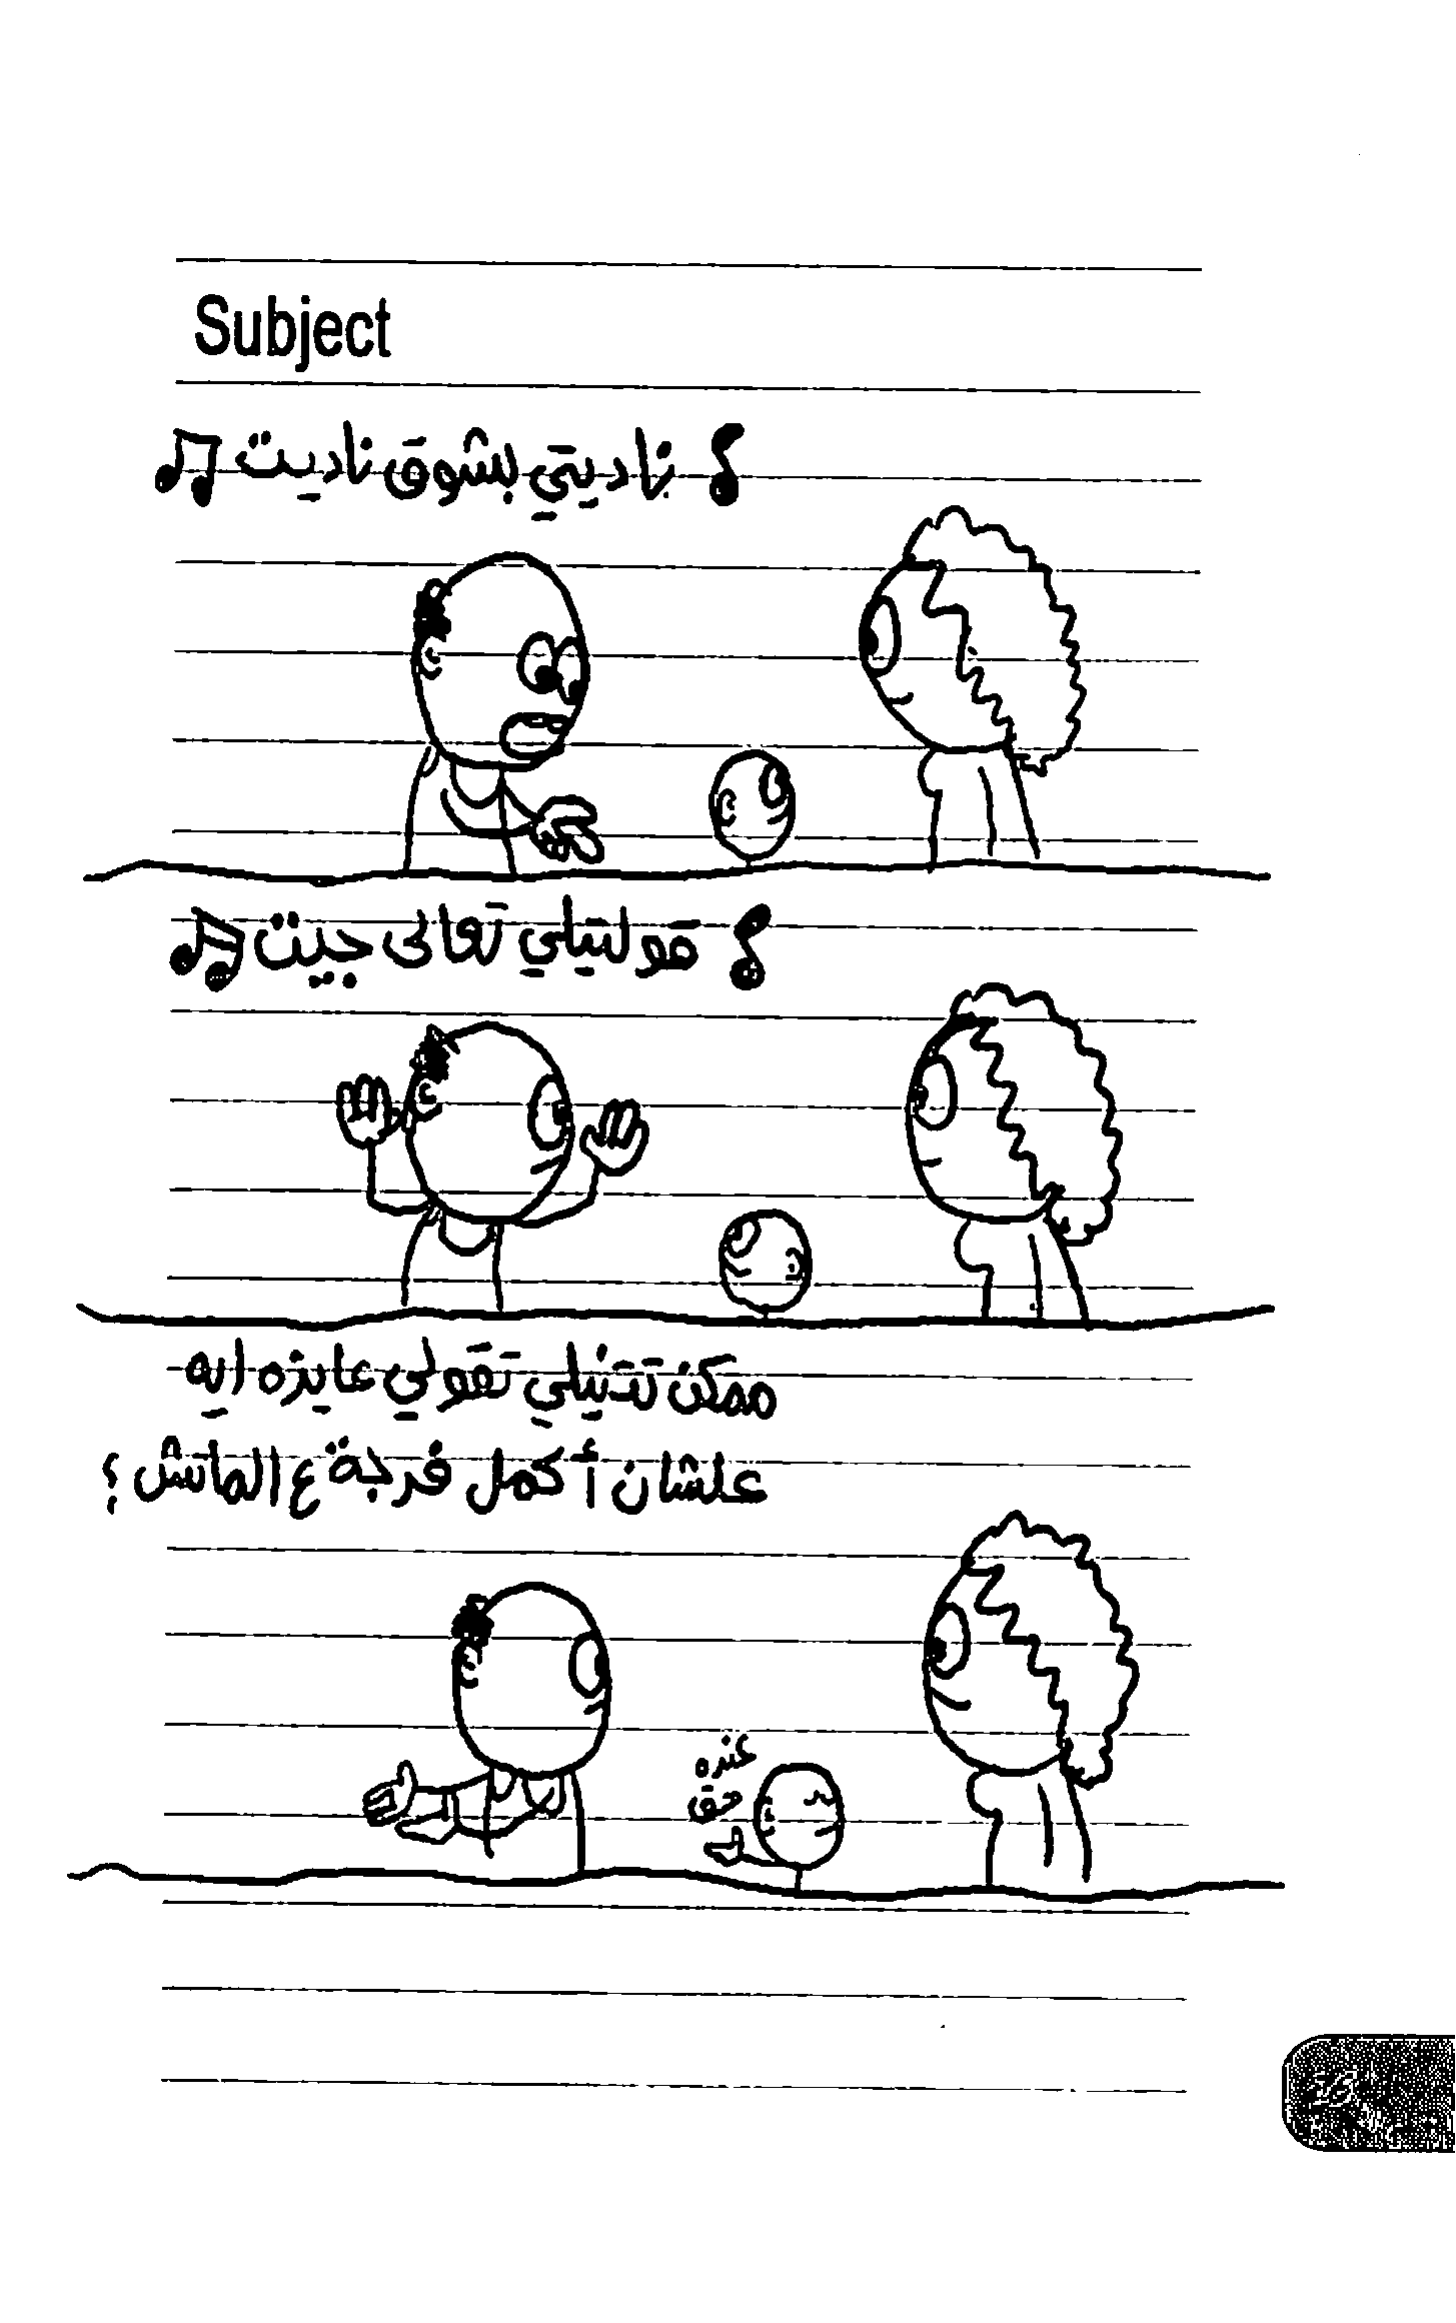 Subject
ناديتي بشوق ناديت
قولتيلي تعالى جيت
ممكن تتنيلي تقولي عايزه ايه
علشان أكمل فرجة ع الماتش؟
عنده
حق